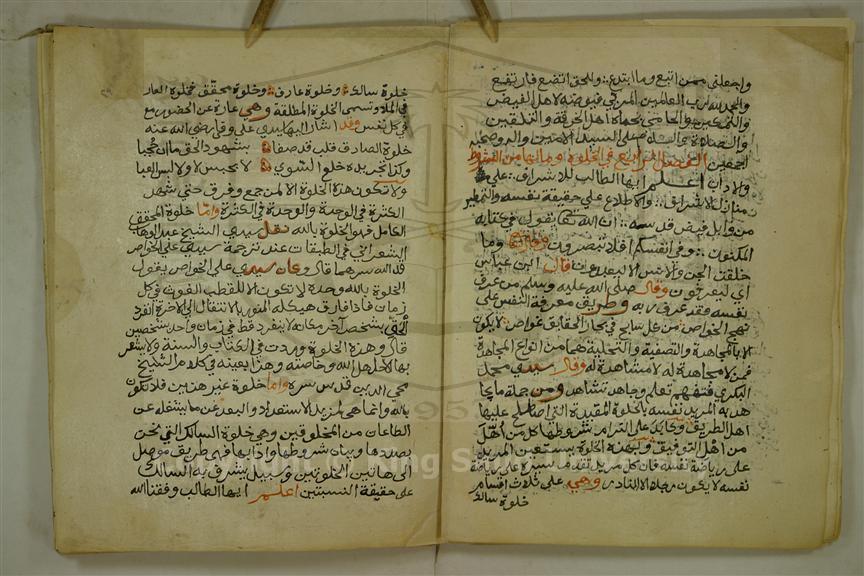 واجعلني ممن اتبع وما ابتدع ۞ وللحق اتضع فارتفع
والحمد لله رب العالمين المربي في فيوضه لاهل الفيض
والتمكين والحاضي بحماه اهل الخرقة والتلقين
والصلاة والسلام على السيد الامين واله وصحبه
اجمعين الفصل الرابع في الخلوة وما لها من الشروط
والاداب اعلم ايها الطالب للاشراف على
منازل الاشراق والاطلاع على حقيقة نفسه والتمطير
من وابل فيض قدسه ان الله تعالى يقول في كتابه
المكنون وفي انفسكم افلا تبصرون وقال تعالى وما
خلقت الجن والانس الا ليعبدون قال ابن عباس
اي ليعرفون وقال صلى الله عليه وسلم من عرف
نفسه فقد عرف ربه وطريق معرفة النفس على
نهج الخواص من غلسايي في بحار الحقايق غواص لا يكون
الا بالمجاهدة والتصفية والتخلية فهما من انواع المجاهدة
فمن لا مجاهدة له لا مشاهدة له وقال سيدي محمد
البكري فتفهم تعلم وجاهد تشاهد ومن جملة ما يجا
هد به المريد نفسه بالخلوة المقيدة التي اصطلح عليها
اهل الطريق وحافظ على التزام شروطها كل من اهل
من اهل التوفيق وبهذه الخلوة يستعين المريد
على رياضة نفسه فان كل مريد لم تقدم سيره على رياضة
نفسه لا يكون مجيئه الا النادر وهي على ثلاث اقسام
خلوة سالك
خلوة سالك ۞ وخلوة عارف ۞ وخلوة محقق فخلوة العار
ف في الملا وتسمى الخلوة المطلقة وهي عبارة عن الحضور مع
في كل نفس وقد اشار اليها سيدي علي وفا رضي الله عنه
خلوة الصادق قلب قد صفا ۞ بشهود الحق ما ان حجبا
وكذا تجريده خلع السوي ۞ لا بحبس لا ولا لبس العبا
ولا تكون هذه الخلوة الا لمن جمع وفرق حتى شهد
الكثرة في الوحدة والوحدة في الكثرة واما خلوة المحقق
الكامل فهو الخلوة بالله نقل سيدي الشيخ عبد الوهاب
الشعراني في الطبقات عند ترجمة سيدي علي الخواص
قدس الله سرهما قال وكان سيدي علي الخواص يقول
الخلوة بالله وحده لا تكون الا للقطب الغوث في كل
زمان فاذا فارق هيكله المنور بالانتقال الى الاخرة انفرد
الحق بشخص اخر مكانه لا ينفرد قط في زمان واحد بشخصين
قال وهذه الخلوة وردت في الكتاب والسنة ولا يشعر
بها الا اهل الله وخاصته وهذا بعينه في كلام الشيخ
محي الدين قدس سره واما خلوة غير هذين فلا تكون
بالله وانما هي لمزيد الاستعداد والبعد عن ما يشغله عن
الطاعات من المخلوقين وهي خلوة السالك التي نحن
بصددها وبيان شروطها وادابها فهي طريق موصل
الى هاتين الخلوتين وسبيل يشرف به السالك
على حقيقة النسبتين اعلم ايها الطالب وفقنا الله